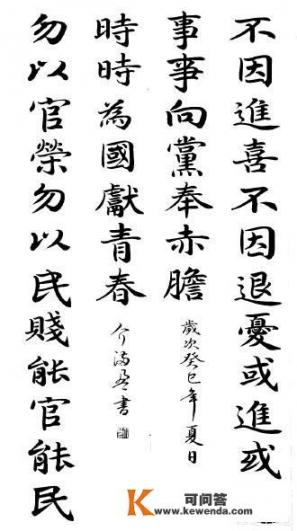 不因進喜不因退憂或進或
事事向黨奉赤膽
歲次癸巳年夏日
時時為國獻青春
介 書
勿以官榮勿以民賤能官能民
可问答
www.kewenda.com